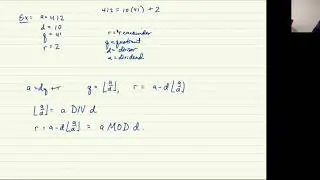 Ex: a = 412
d = 10
q = 41
r = 2
412 = 10(41) + 2
r = remainder
q = quotient
d = divisor
a = dividend
a = dq + r q = ⌊a/d⌋, r = a - d⌊a/d⌋
⌊a/d⌋ = a DIV d
r = a - d⌊a/d⌋ = a MOD d.